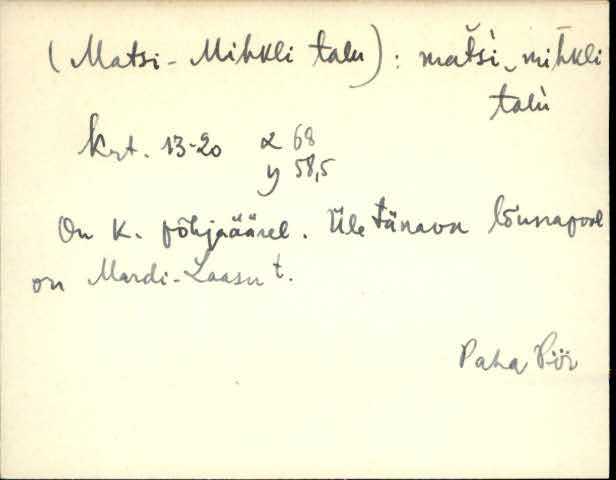 (Matsi-Mihkli talu): mat̆si‿mìhkli
talù
krt. 13-20 x 68
y 58,5
On K. põhjaäärel. Üle tänava lõunapool
on Mardi-Laasu t.
Paha Piir